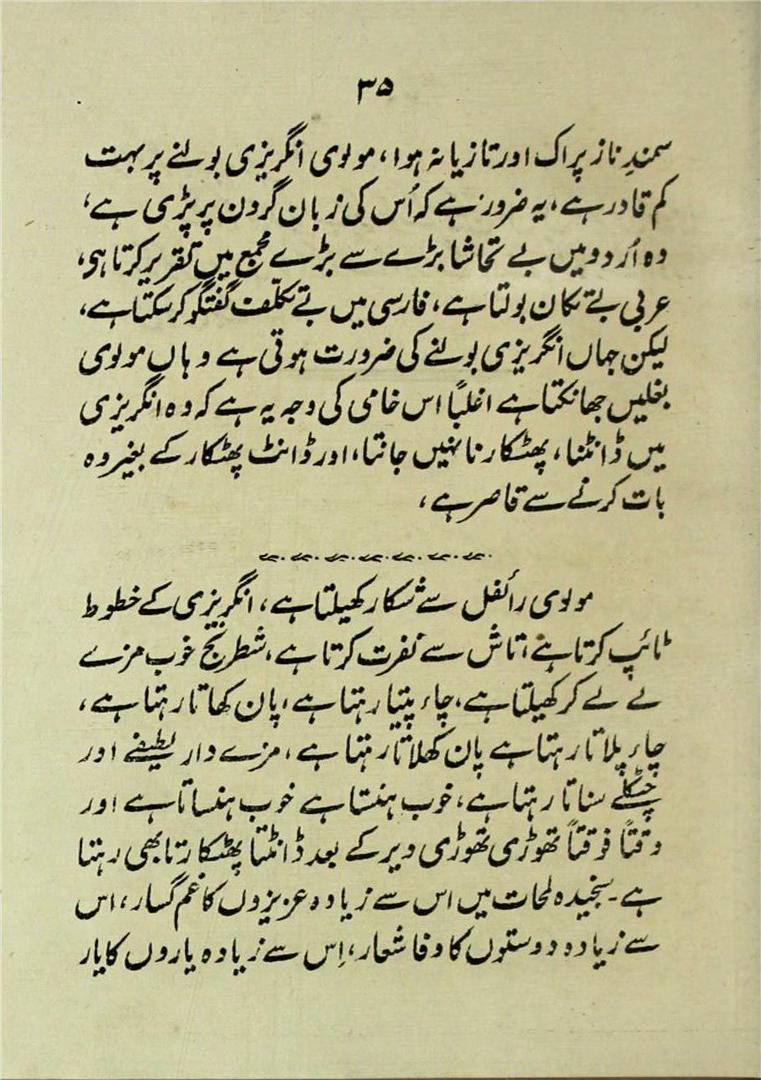 ۳۵
سمندِ ناز پر اک اور تازیانہ ہوا، مولوی انگریزی بولنے پر بہت
کم قادر ہے، یہ ضرور ہے کہ اُس کی زبان گردن پر پڑی ہے،
وہ اُردو میں بے تحاشا بڑے سے بڑے مجمع میں تقریر کرتا ہی،
عربی بے تکان بولتا ہے، فارسی میں بے تکلف گفتگو کر سکتا ہے،
لیکن جہاں انگریزی بولنے کی ضرورت ہوتی ہے وہاں مولوی
بغلیں جھانکتا ہے اغلباً اس خامی کی وجہ یہ ہے کہ وہ انگریزی
میں ڈانٹنا، پھٹکارنا نہیں جانتا، اور ڈانٹ پھٹکار کے بغیر وہ
بات کرنے سے قاصر ہے،
مولوی رائفل سے شکار کھیلتا ہے، انگریزی کے خطوط
ٹائپ کرتا ہے، تاش سے نفرت کرتا ہے، شطرنج خوب مزے
لے لے کر کھیلتا ہے، چاء پیتا رہتا ہے، پان کھاتا رہتا ہے،
چاء پلاتا رہتا ہے پان کھلاتا رہتا ہے، مزے دار لطیفے اور
چٹکلے سناتا رہتا ہے، خوب ہنستا ہے خوب ہنساتا ہے اور
وقتاً فوقتاً تھوڑی تھوڑی دیر کے بعد ڈانٹتا پھٹکارتا بھی رہتا
ہے۔ سنجیدہ لمحات میں اس سے زیادہ عزیزوں کا غم گسار، اس
سے زیادہ دوستوں کا وفا شعار، اِس سے زیادہ یاروں کا یار